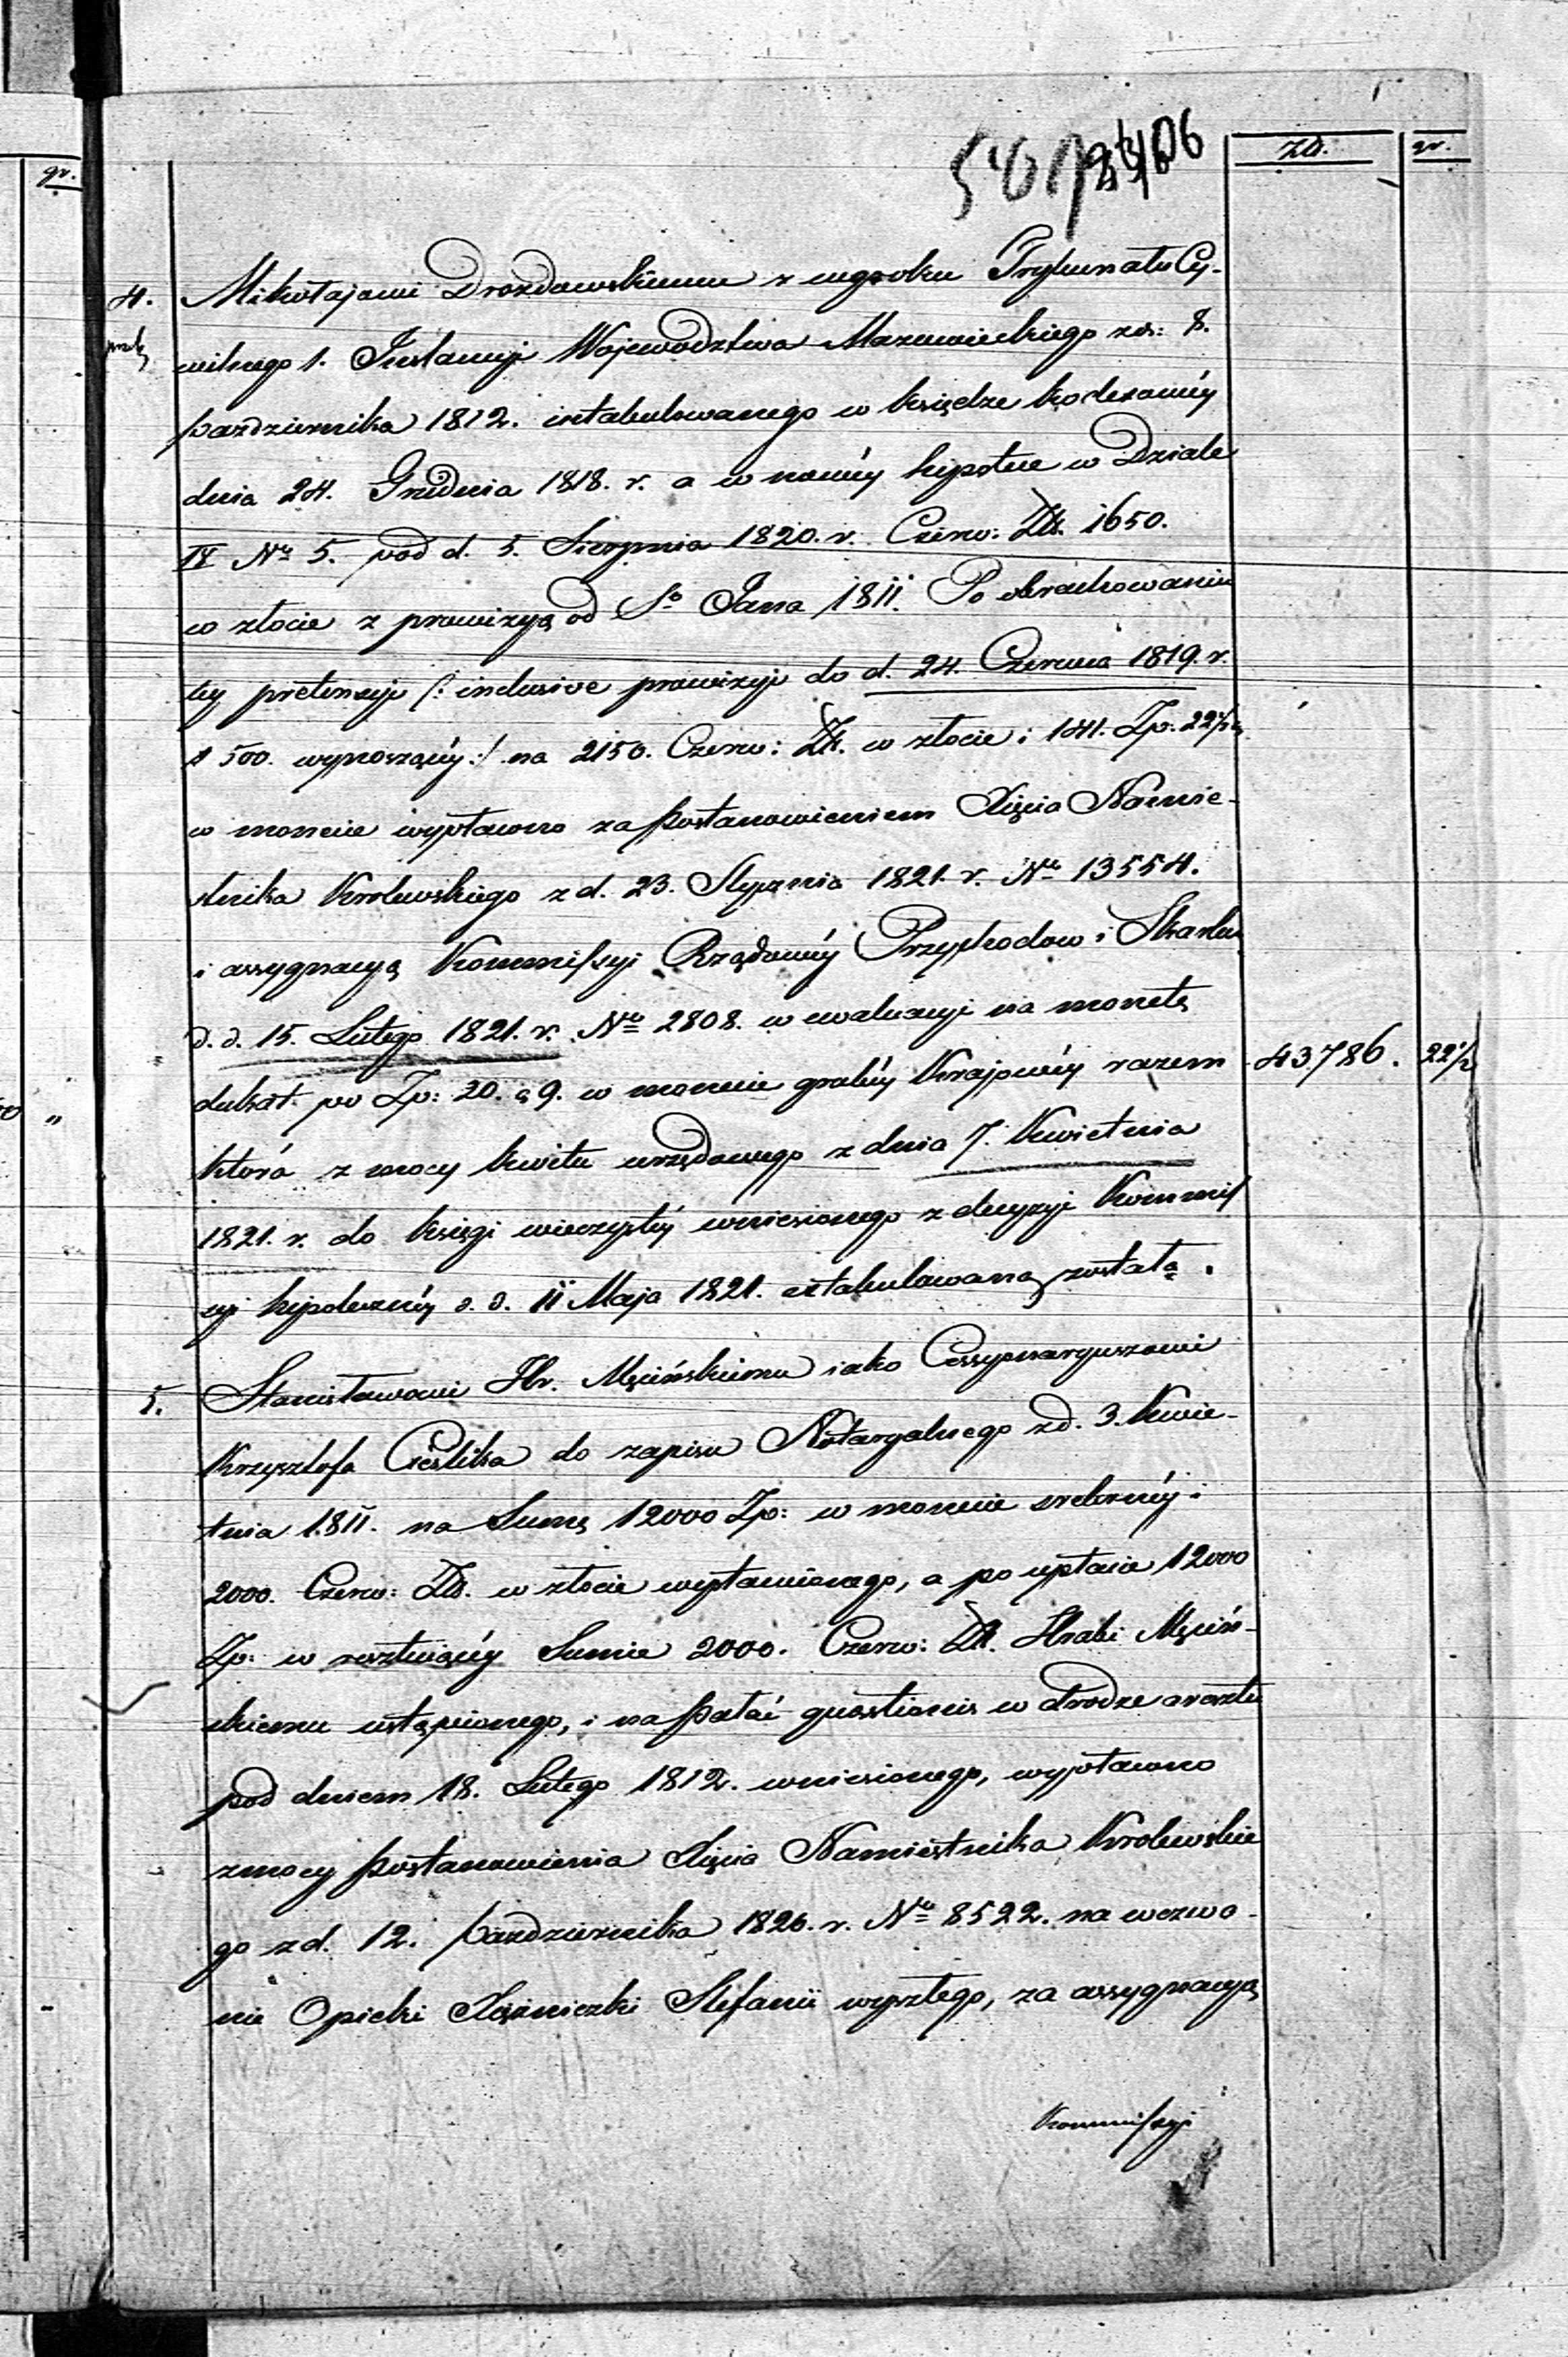 Zło. gr.
gr.
4. Mikołajowi Drozdowskiemu z wyroku Trybunału Cy-
wilnego 1. Instancyi Województwa Mazowieckiego zd: 8.
października 1812. intabulowanego w księdze kodexowéy
dnia 24. Grudnia 1818. r. a w nowéy hypotece w Dziale
IV Nr 5. pod d. 5. Sierpnia 1820. r. Czerw: Zł. 1650.
w złocie z prowizyą od So Jana 1811. Po obrachowaniu
téy pretensyi /: inclusive prowizyi do d. 24. Czerwca 1819. r.
# 500. wynoszącéy :/ na 2150. Czerw: Zł. w złocie i 141. Zp. 22½
w monecie wypłacono za postanowieniem Xięcia Namie-
stnika Krolewskiego z d. 23. Stycznia 1821. r. Nr 13554.
i assygnacyą Kommissyi Rządowéy Przychodow i Skarbu
d. d. 15. Lutego 1821. r. Nr 2808. w ewaluacyi na monetę
dukat po Zp: 20. g 9. w monecie grubéy Krajowéy razem 43786. 22½
która z mocy kwitu urzędowego z dnia 7. Kwietnia
1821. r. do księgi wieczystéy wniesionego z decyzyi Kommis
syi hypotecznéy d. d. 11 Maja 1821. extabulowaną została.
5. Stanisławowi Hr. Męcińskiemu iako Cessyonaryuszowi
Krzysztofa Cieślika do zapisu Notaryalnego z d. 3. Kwie-
tnia 1811. na Sumę 12000 Zp: w monecie srebrnéy i
2000. Czerw: Zł. w złocie wystawionego, a po upłacie 12000
Zp: w resztuiącéy Sumie 2000. Czerw: Zł. Hrabi Męciń-
skiemu ustąpionego, i na połać quaestionis w drodze aresztu
pod dniem 18. Lutego 1812. wniesionego, wypłacono
z mocy postanowienia Xięcia Namiestnika Krolewskie
go z d. 12. października 1820. r. Nr 8522. na wezwa-
nie Opieki Xiężniczki Stefanii wyszłego, za assygnacyą
Kommissyi